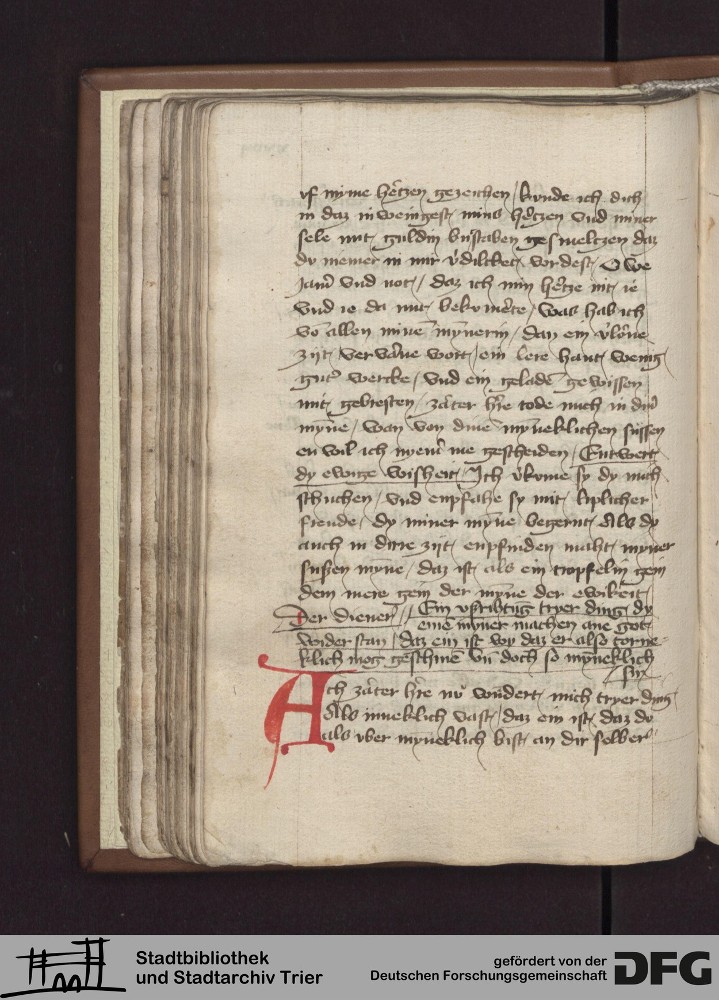 vf mime hertzen gezeichen / kunde ich dich
in daz inweingest mins hertzen vnd miner
sele mit guldin bůstaben gesmeltzen daz
du niemer in mir v̓dilcket wordest / O we
Jam̄ vnd not / daz ich min hertze nit ie
vnd ie da mit bekomerte / was hab ich
vō allen minē minnerin / dan ein v̓lorne
zijt / ververne wort / ein lere hant / wenig
gut̓ wercke / vnd ein geladē gewissen
mit gebresten / zarter h̓re tode mich in din̓
myne / wan von dinē mynneklichen fůssen
en wil ich nyem̓ me gescheiden / Entwert
dy ewige wisheit / Ich v̓kome sy dy mich
suchen / vnd enpfahe sy mit liplicher
freude / dy miner myne begernt / Als dy
auch in dirre zijt enpfinden maht / myner
sußen myne / daz ist als ein tropfelin gein
dem mere gein der myne der ewikeit
Der diener / Ein vsribtig tryer ding / dy
eine myner machen ane got
wider stan / daz ein ist wy daz er also zorne
klich mog geschinē vn̄ doch so myneklich
sin
Ach zarter h̓re nů wundert mich tryer ding
Als inneklich vast / daz ein ist / daz du
als vber myneklich bist an dir selber
Stadtbibliothek
und Stadtarchiv Trier
gefördert von der
Deutschen Forschungsgemeinschaft
DFG